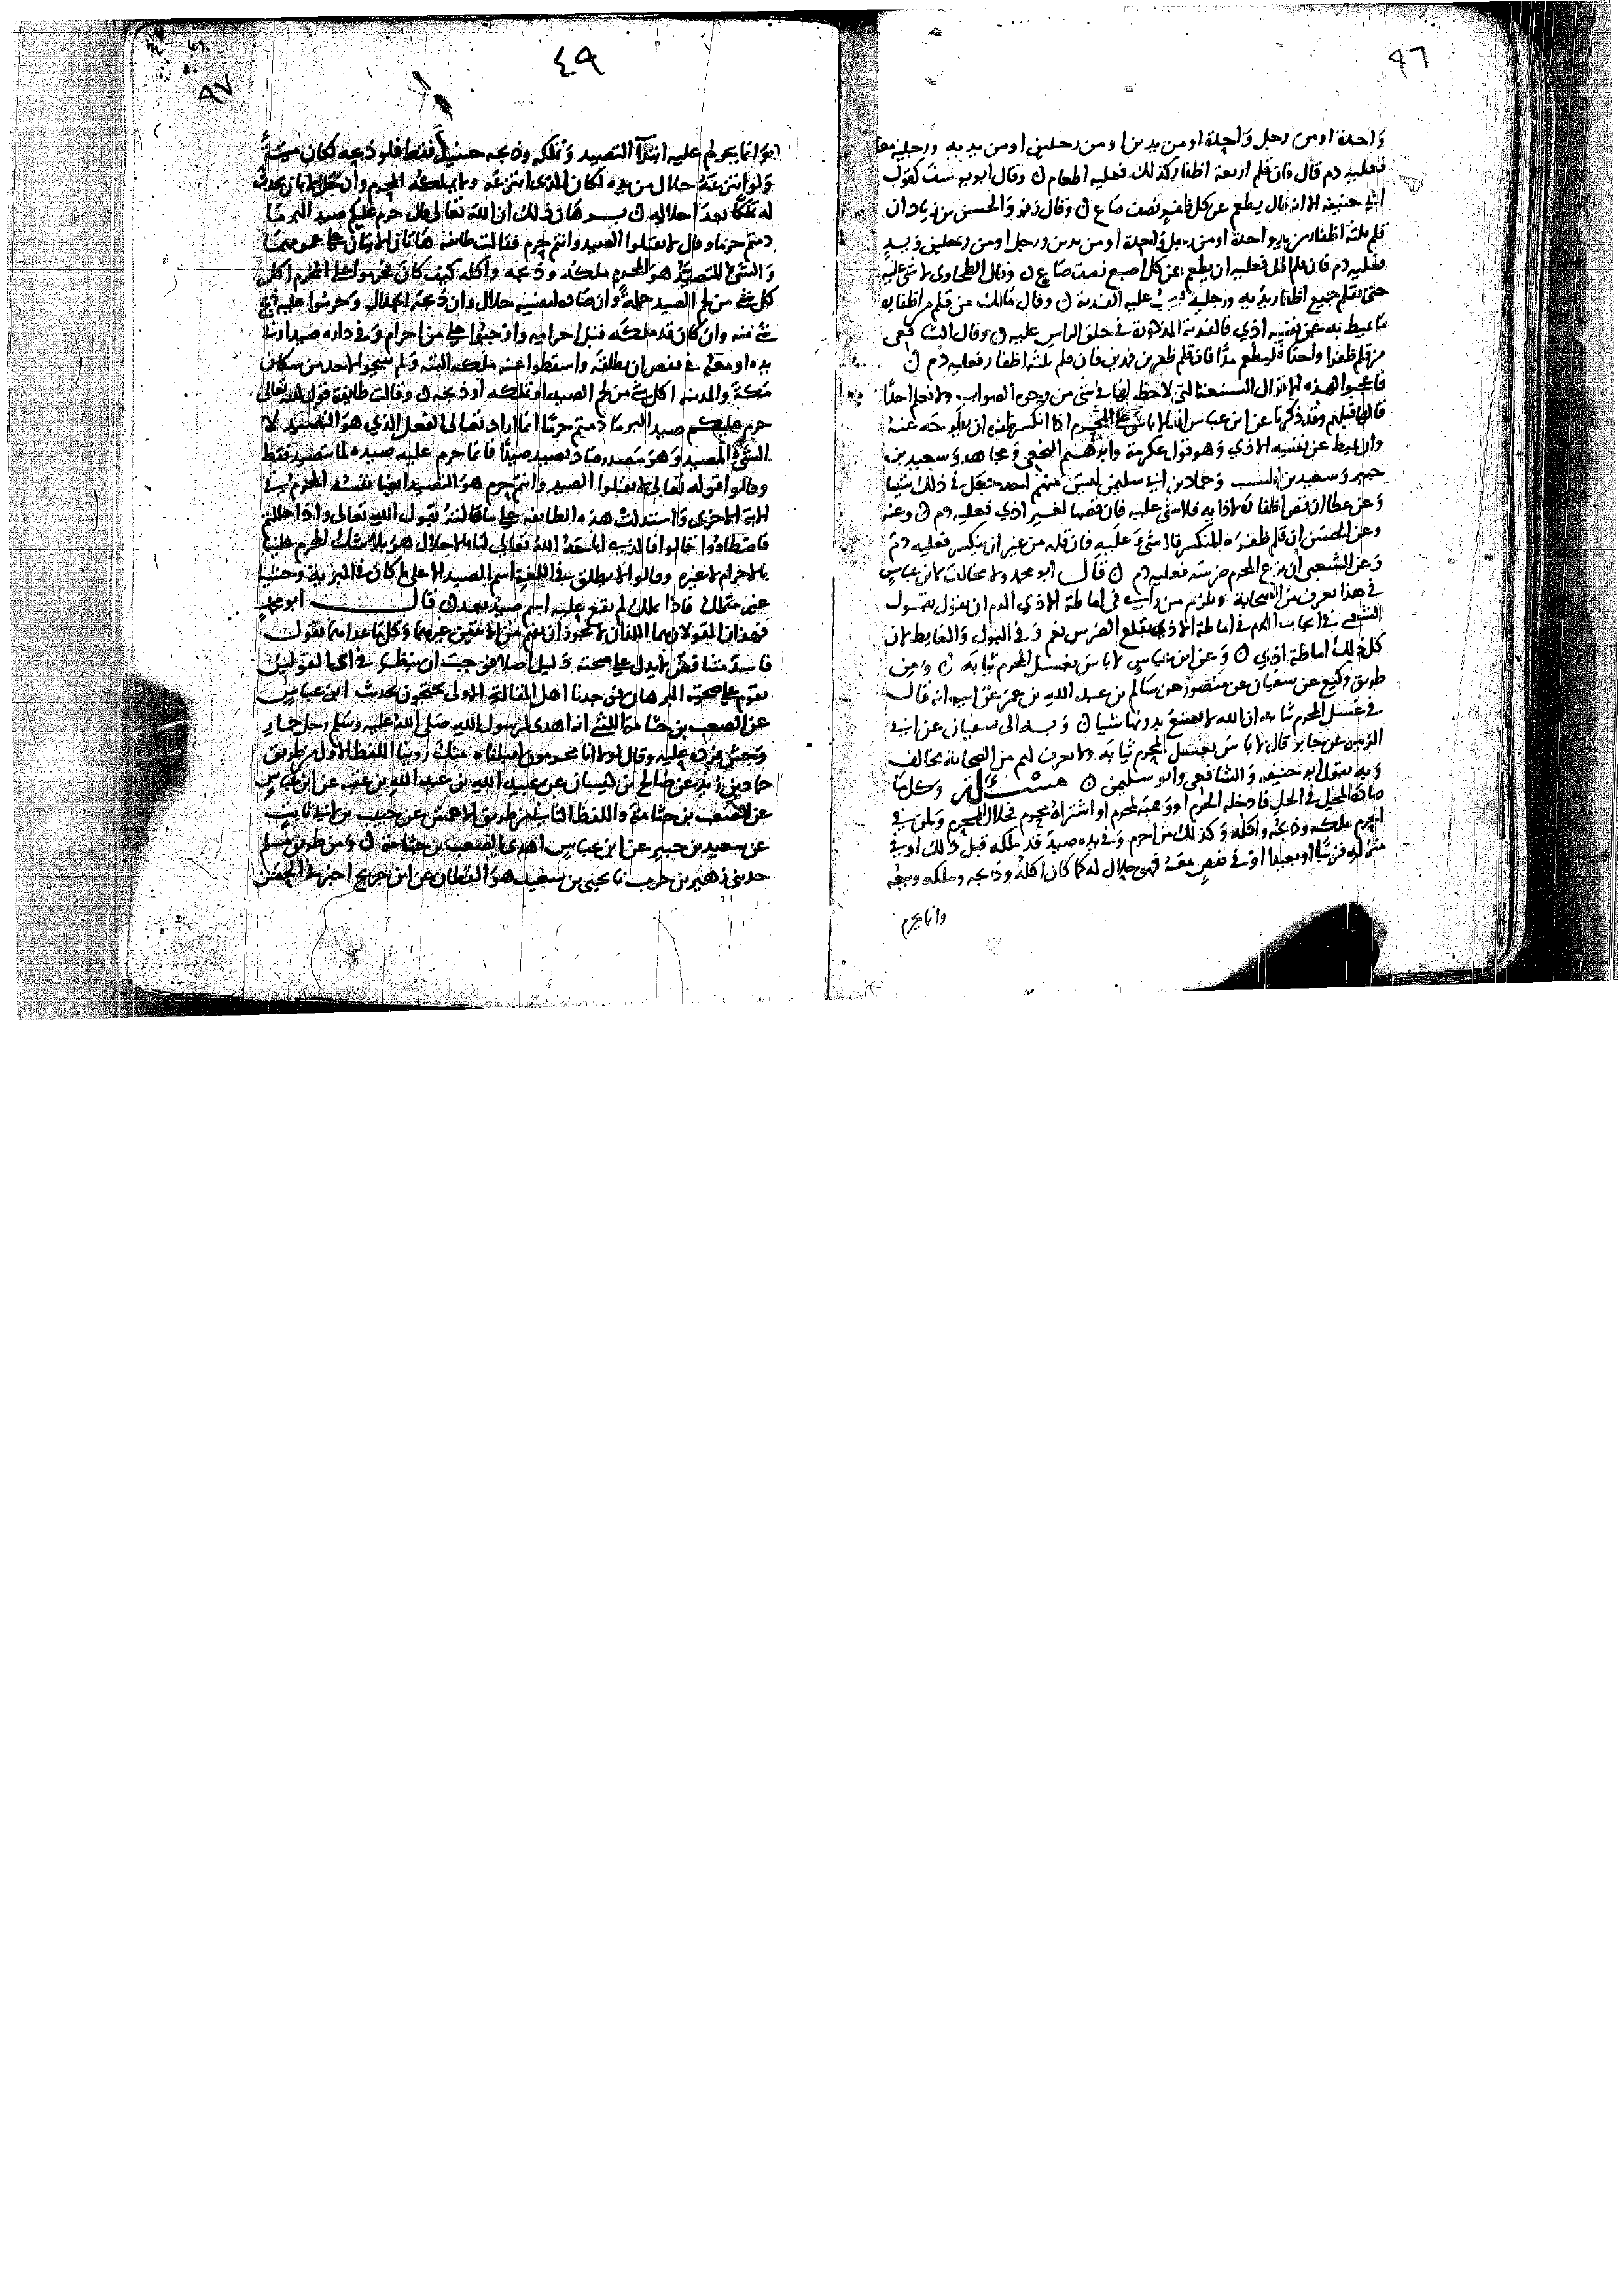 ٩٦
واحدة او من رجل واحدة او من يدين او من رجلين او من يديه ورجليه معا
فعليه دم قال فان قلم اربعة اظفار كذلك فعليه اطعام ن وقال ابو يوسف كقول
ابي حنيفه الا انه قال يطعم عن كل ظفر نصف صاع ن وقال زفر والحسن بن زياد ان
قلم ثلثة اظفار من يد واحدة او من رجل واحدة او من يدين ورجل او من رجلين ويد
فعليه دم فان قلم اقل فعليه ان يطعم عن كل اصبع نصف صاع ن وقال الطحاوى لا شى عليه
حتى يقلم جميع اظفار يديه ورجليه فتجب عليه الفدية ن وقال مالك من قلم من اظفاره
ما يميط به عن نفسه اذي فالفدية المذكورة في حلق الراس عليه ن وقال الشافعى
من قلم ظفرا واحدا فليطعم مدا فان قلم ظفرين فمدين فان قلم ثلثة اظفار فعليه دم ن
فاعجبوا لهذه الاقوال الشنيعة التى لاحظ لها في شى من وجوه الصواب ولا نعلم احدا
قالها قبلهم وقد ذكرنا عن ابن عباس انه لا باس على المحرم اذا انكسر ظفره ان يطرحه عنه
وان يميط عن نفسه الاذي وهو قول عكرمة وابرهيم النخعى ومجاهد وسعيد بن
جبير وسعيد بن المسيب وحماد بن ابي سليمن ليس منهم احد جعل في ذلك شيا
وعن عطا ان قص اظفاره لاذا به فلا شى عليه فان قصها لغير اذي فعليه دم ن وعنه
وعن الحسن ان قلم ظفره المنكسر فلا شى عليه فان قلمه من غير ان ينكسر فعليه دم
وعن الشعبى ان نزع المحرم ضرسه فعليه دم ن قال ابو محمد ولا مخالف لابن عباس
في هذا يعرف من الصحابة ويلزم من راى في اماطة الاذي الدم ان يقول بقول
الشعبى في ايجاب الدم في اماطة الاذي بقلع الضرس نعم وفى البول والغايط لان
كل ذلك اماطة اذي ن وعن ابن عباس لا باس بغسل المحرم ثيابه ن ومن
طريق وكيع عن سفيان عن منصور عن سالم بن عبد الله بن عمر عن ابيه انه قال
في غسل المحرم ثيابه ان الله لا يصنع بدرنها شيا ن وبه الى سفيان عن ابي
الزبير عن جابر قال لا باس بغسل المحرم ثيابه ولا يعرف لهم من الصحابة مخالف
وبه يقول ابو حنيفه والشافعى وابو سليمن ن مسئلة وكل ما
صاده المحل في الحل فادخله الحرم او وهبه لمحرم او اشتراه محرم فحلال للمحرم ولمن في
الحرم ملكه وذبحه واكله وكذلك من احرم وفى يده صيد قد ملكه قبل ذلك او في
منزله قريبا او بعيدا او في قفص معه فهو حلال له كما كان اكله وذبحه وملكه وبيعه
وانما يحرم
٤٩
٩٧
وانما يحرم عليه ابتدا التصيد وتملكه وذبحه حينيذ فقط فلو ذبحه لكان ميتة
ولو انتزعه حلال من يده لكان للذى انتزعه ولا يملكه المحرم وان احل الا بان يحدث
له تملكا بعد احلاله ن برهان ذلك ان الله تعالى قال حرم عليكم صيد البر ما
دمتم حرما وقال لا تقتلوا الصيد وانتم حرم فقالت طايفة هاتان الايتان على عمومهما
والشى المتصيد هو المحرم ملكه وذبحه واكله كيف كان فحرموا على المحرم اكل
كل شى من لحم الصيد جملة وان صاده لنفسه حلال وان ذبحه الحلال وحرموا عليه ذبح
شى منه وان كان قد ملكه قبل احرامه واوجبوا على من احرم وفى داره صيد او في
يده او معه في قفص ان يطلقه واسقطوا عنه ملكه البتة ولم يبيحوا لاحد من سكان
مكة والمدينة اكل شى من لحم الصيد او تملكه او ذبحه ن وقالت طايفة قول الله تعالى
حرم عليكم صيد البر ما دمتم حرما انما اراد تعالى الفعل الذي هو التصيد لا
الشى المصيد وهو مصدر صاد يصيد صيدا فانما حرم عليه صيده لما يتصيد فقط
وقالوا قوله تعالى لا تقتلوا الصيد وانتم حرم هو التصيد ايضا نفسه المحرم في
الاية الاخرى واستدلت هذه الطايفة على ما قالته بقول الله تعالى واذا حللتم
فاصطادوا قالوا فالذى اباحه الله تعالى لنا بالاحلال هو بلا شك المحرم علينا
بالاحرام لا غيره وقالوا لا يطلق في اللغة اسم الصيد الا على ما كان في البرية وحشيا
غير متملك فاذا ملك لم يقع عليه اسم صيد بعد ن قال ابو محمد
فهذان القولان هما اللذان لا يجوز ان يفهم من الايتين غيرهما وكل ما عداهما فقول
فاسد متناقض لا يدل على صحته دليل اصلا فوجب ان ينظر في اى القولين
يقوم على صحته البرهان فوجدنا اهل المقالة الاولى يحتجون بحديث ابن عباس
عن الصعب بن جثامة الليثى انه اهدى لرسول الله صلى الله عليه وسلم رجل حمار
وحش فرده عليه وقال لولا انا محرمون لقبلناه منك روينا اللفظ الاول من طريق
حماد بن زيد عن صالح بن كيسان عن عبيد الله بن عبد الله بن عتبه عن ابن عباس
عن الصعب بن جثامة واللفظ الثاني من طريق الاعمش عن حبيب بن ابي ثابت
عن سعيد بن جبير عن ابن عباس اهدى الصعب بن جثامة ن ومن طريق مسلم
حدثنى زهير بن حرب نا يحيى بن سعيد هو القطان عن ابن جريج اخبرني الحسن